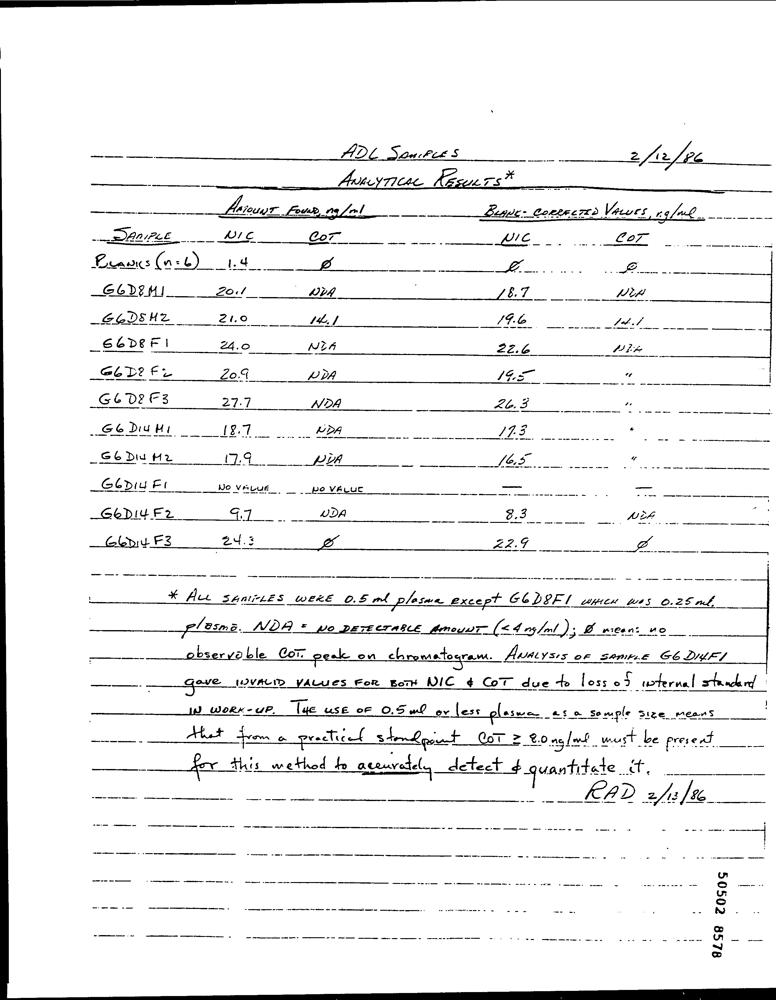 ADL SAMPLES 2/12/86
ANALYTICAL RESULTS*
AMOUNT FOUND, ng/ml BLANK-CORRECTED VALUES, ng/ml
SAMPLE NIC COT NIC COT
BLANKS (n=6) 1.4 Ø Ø Ø
G6D8M1 20.1 NDA 18.7 NDA
G6D8M2 21.0 14.1 19.6 14.1
G6D8F1 24.0 NDA 22.6 NDA
G6D8F2 20.9 NDA 19.5 "
G6D8F3 27.7 NDA 26.3 "
G6D14M1 18.7 NDA 17.3 "
G6D14M2 17.9 NDA 16.5 "
G6D14F1 NO VALUE NO VALUE — —
G6D14F2 9.7 NDA 8.3 NDA
G6D14F3 24.3 Ø 22.9 Ø
* ALL SAMPLES WERE 0.5 ml plasma except G6D8F1 WHICH WAS 0.25 ml.
plasma. NDA = NO DETECTABLE AMOUNT (<4 ng/ml); Ø means no
observable COT. peak on chromatogram. ANALYSIS OF SAMPLE G6D14F1
gave INVALID VALUES FOR BOTH NIC & COT due to loss of internal standard
IN WORK-UP. THE USE OF 0.5 ml or less plasma as a sample size means
that from a practical standpoint COT ≥ 8.0 ng/ml must be present
for this method to accurately detect & quantitate it.
RAD 2/13/86
50502 8578